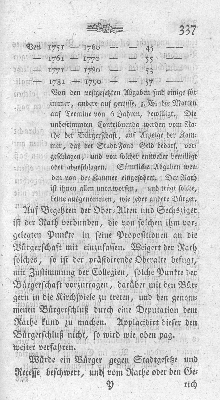 337
Von 1751 — 1760 — — 45
— 1761 — 1770 — — 55
— 1771 — 1780 — — 53
— 1781 — 1790 — — 37
Von den vestgesetzten Abgaben sind einige für
immer, andere auf gewisse, z. B. die Matten
auf Termine von 6 Jahren, bewilligt. Die
unbestimmten Contribuenda werden vom Ra-
the der Bürgerschaft, auf Anzeige der Kam-
mer, daß der Stadt Fond Geld bedarf, vor-
geschlagen, und von solcher entweder bewilligt
oder abgeschlagen. Sämtliche Abgaben wer-
den von der Kammer eingefordert. Der Rath
ist ihnen allen unterworfen, und trägt solche,
wie jeder andere Bürger.
Auf Begehren der Ober-Alten und Sechsziger
ist der Rath verbunden, die von solchen ihm vor-
gelegten Punkte in seine Proposition an die
Bürgerschaft mit einzufassen. Weigert der Rath
solches, so ist der präsidirende Oberalte befugt,
mit Zustimmung der Collegien, solche Punkte der
Bürgerschaft vorzutragen, darüber mit den Bür-
gern in die Kirchspiele zu treten, und den genom-
menen Bürgerschluß durch eine Deputation dem
Rathe kund zu machen. Applacidirt dieser den
Bürgerschluß nicht, so wird wie oben pag.
weiter verfahren.
Würde ein Bürger gegen Stadtgesetze und
Recesse beschwert, und vom Rathe oder den Ge-
Y rich